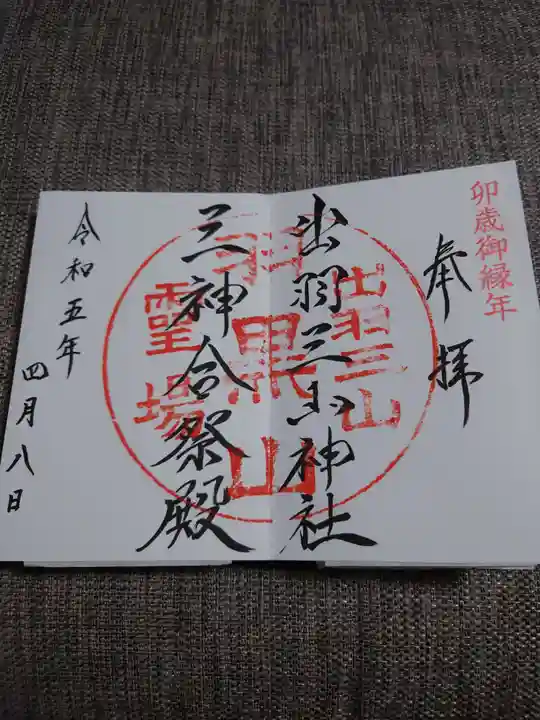 卯歳御縁年
奉拝
出羽三山神社
三神合祭殿
令和五年
四月八日
出羽三山
羽黒山
霊場